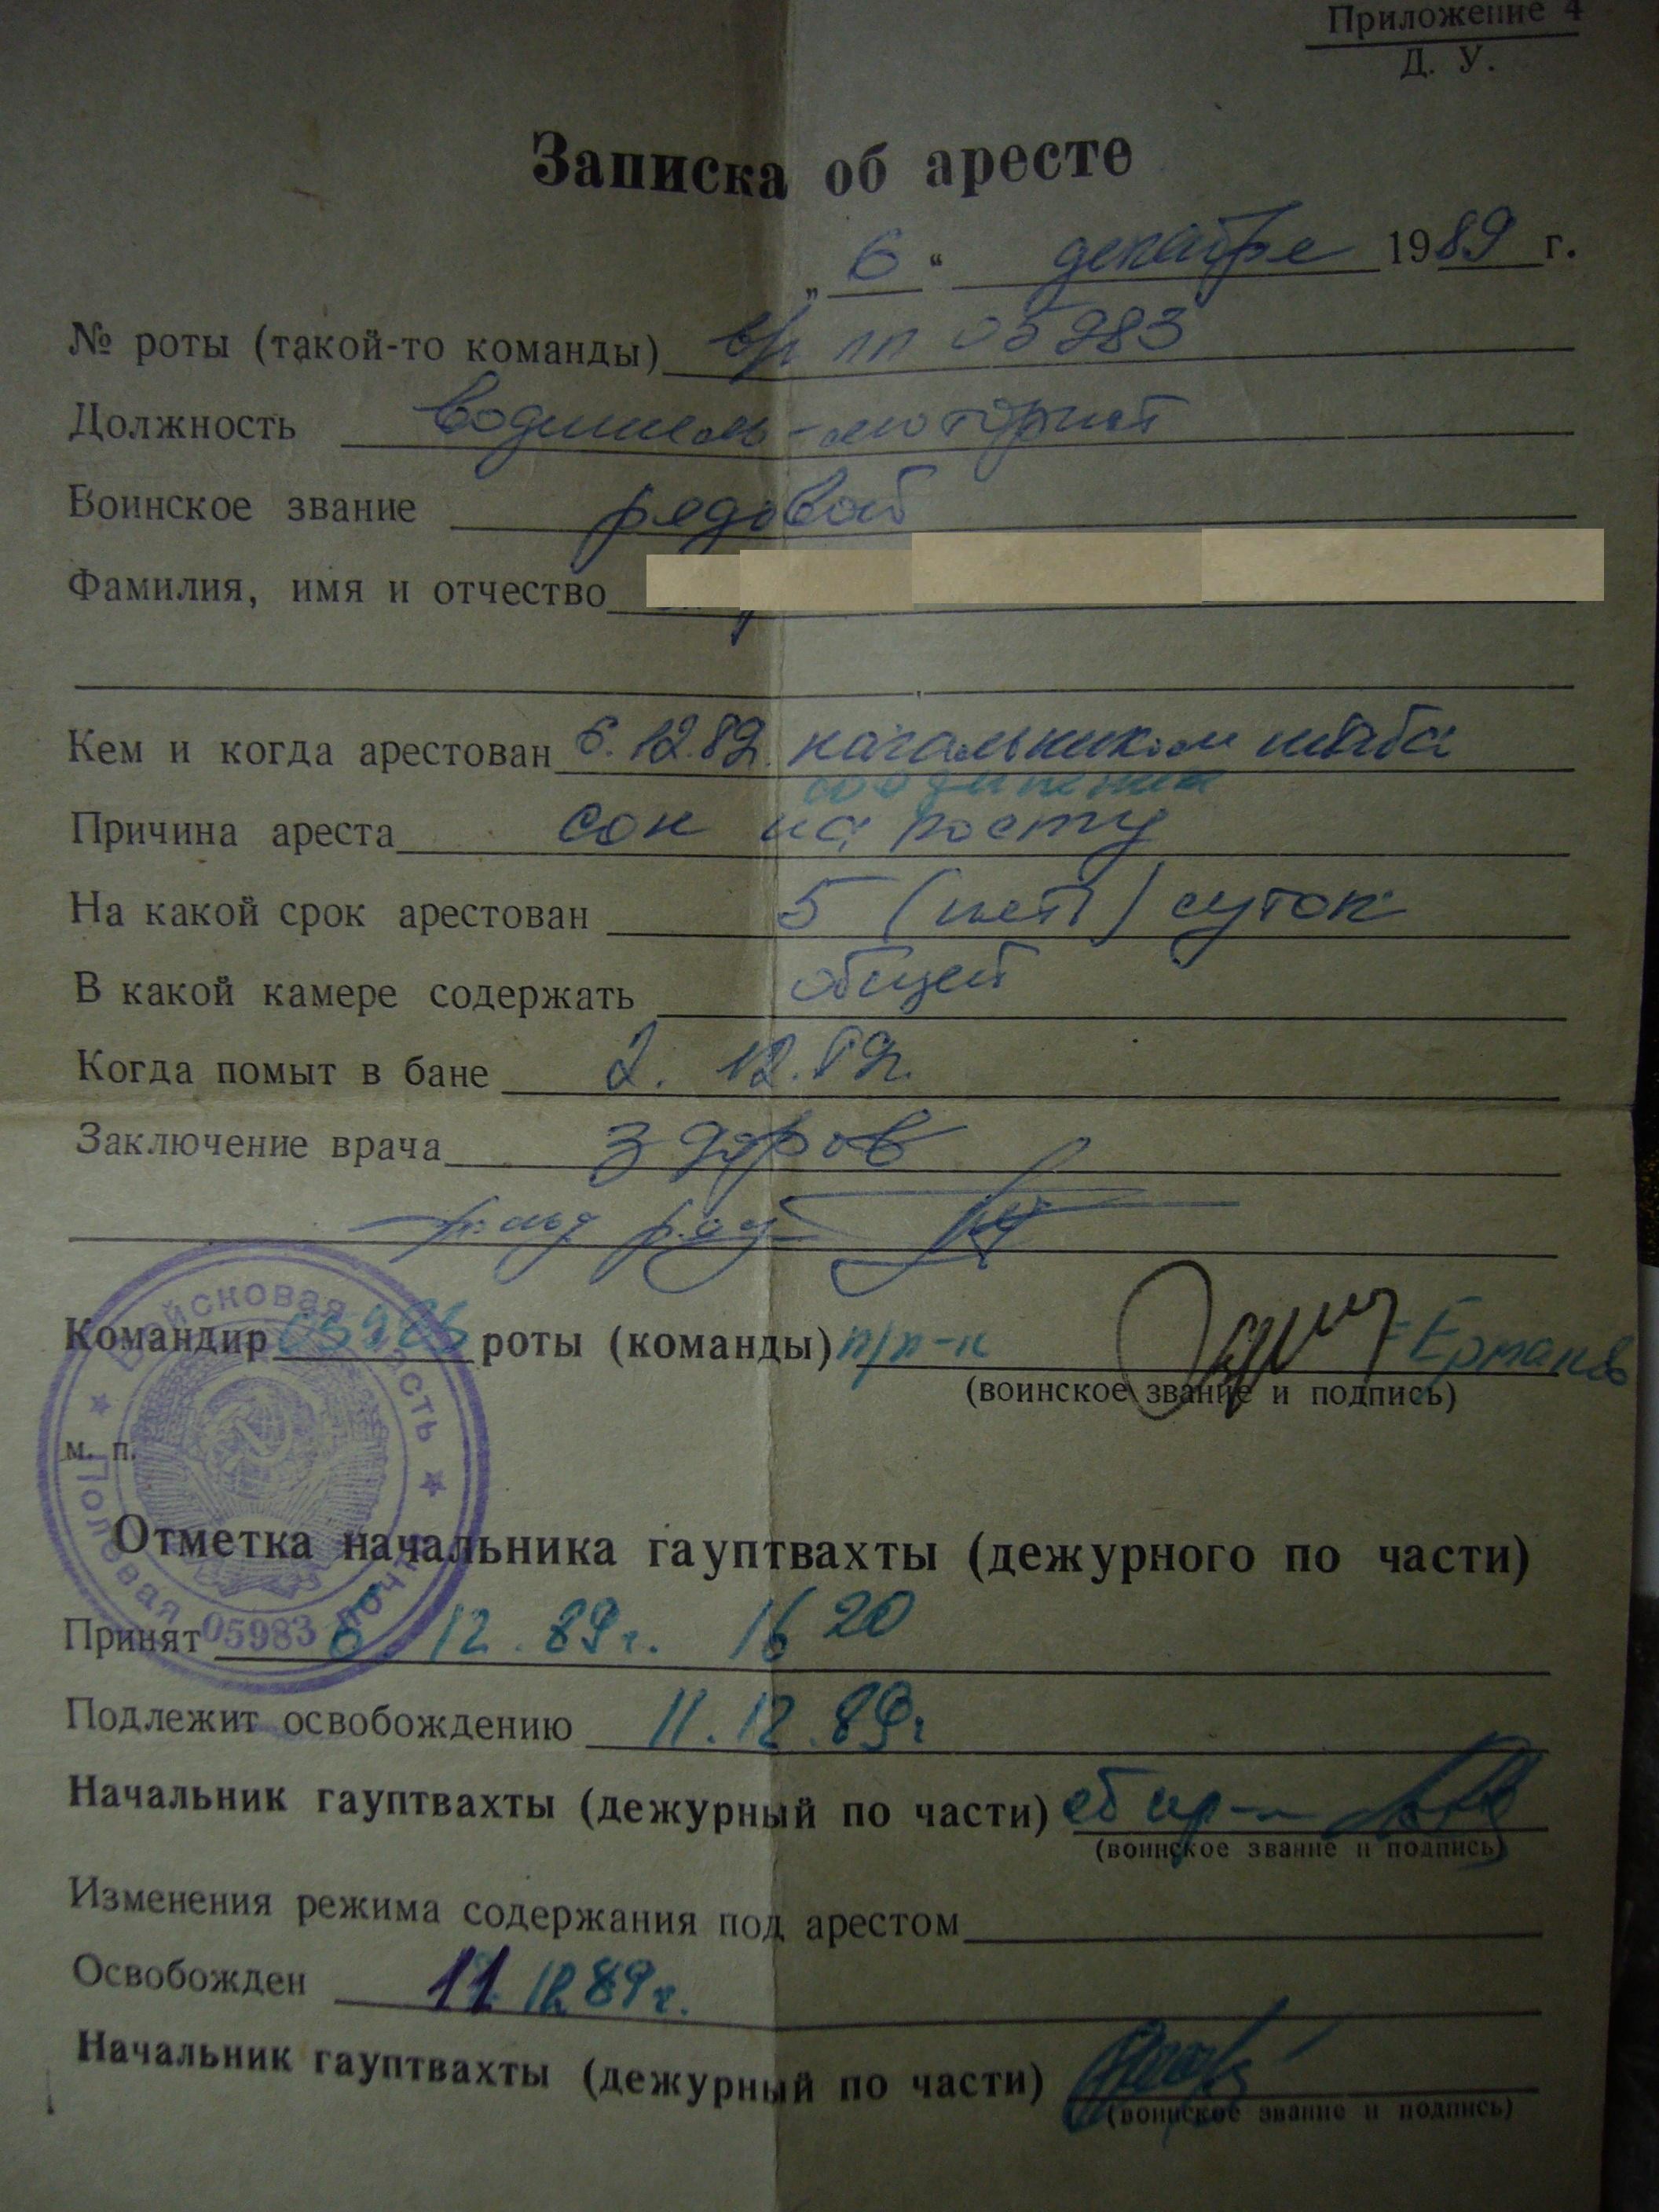 Приложение 4
Д. У.
Записка об аресте
„ 6 “ декабря 1989 г.
№ роты (такой-то команды) в/ч пп 05983
Должность водитель-моторист
Воинское звание рядовой
Фамилия, имя и отчество
Кем и когда арестован 6.12.89г. начальником штаба
соединения
Причина ареста сон на посту
На какой срок арестован 5 (пять) суток
В какой камере содержать общей
Когда помыт в бане 2. 12. 89г.
Заключение врача здоров
Командир 05983 роты (команды) п/п-к Ермаков
(воинское звание и подпись)
м. п.
Войсковая часть
Полевая почта
05983
Отметка начальника гауптвахты (дежурного по части)
Принят 6. 12. 89г. 16 20
Подлежит освобождению 11. 12. 89г
Начальник гауптвахты (дежурный по части)
(воинское звание и подпись)
Изменения режима содержания под арестом
Освобожден 11. 12. 89г.
Начальник гауптвахты (дежурный по части)
(воинское звание и подпись)